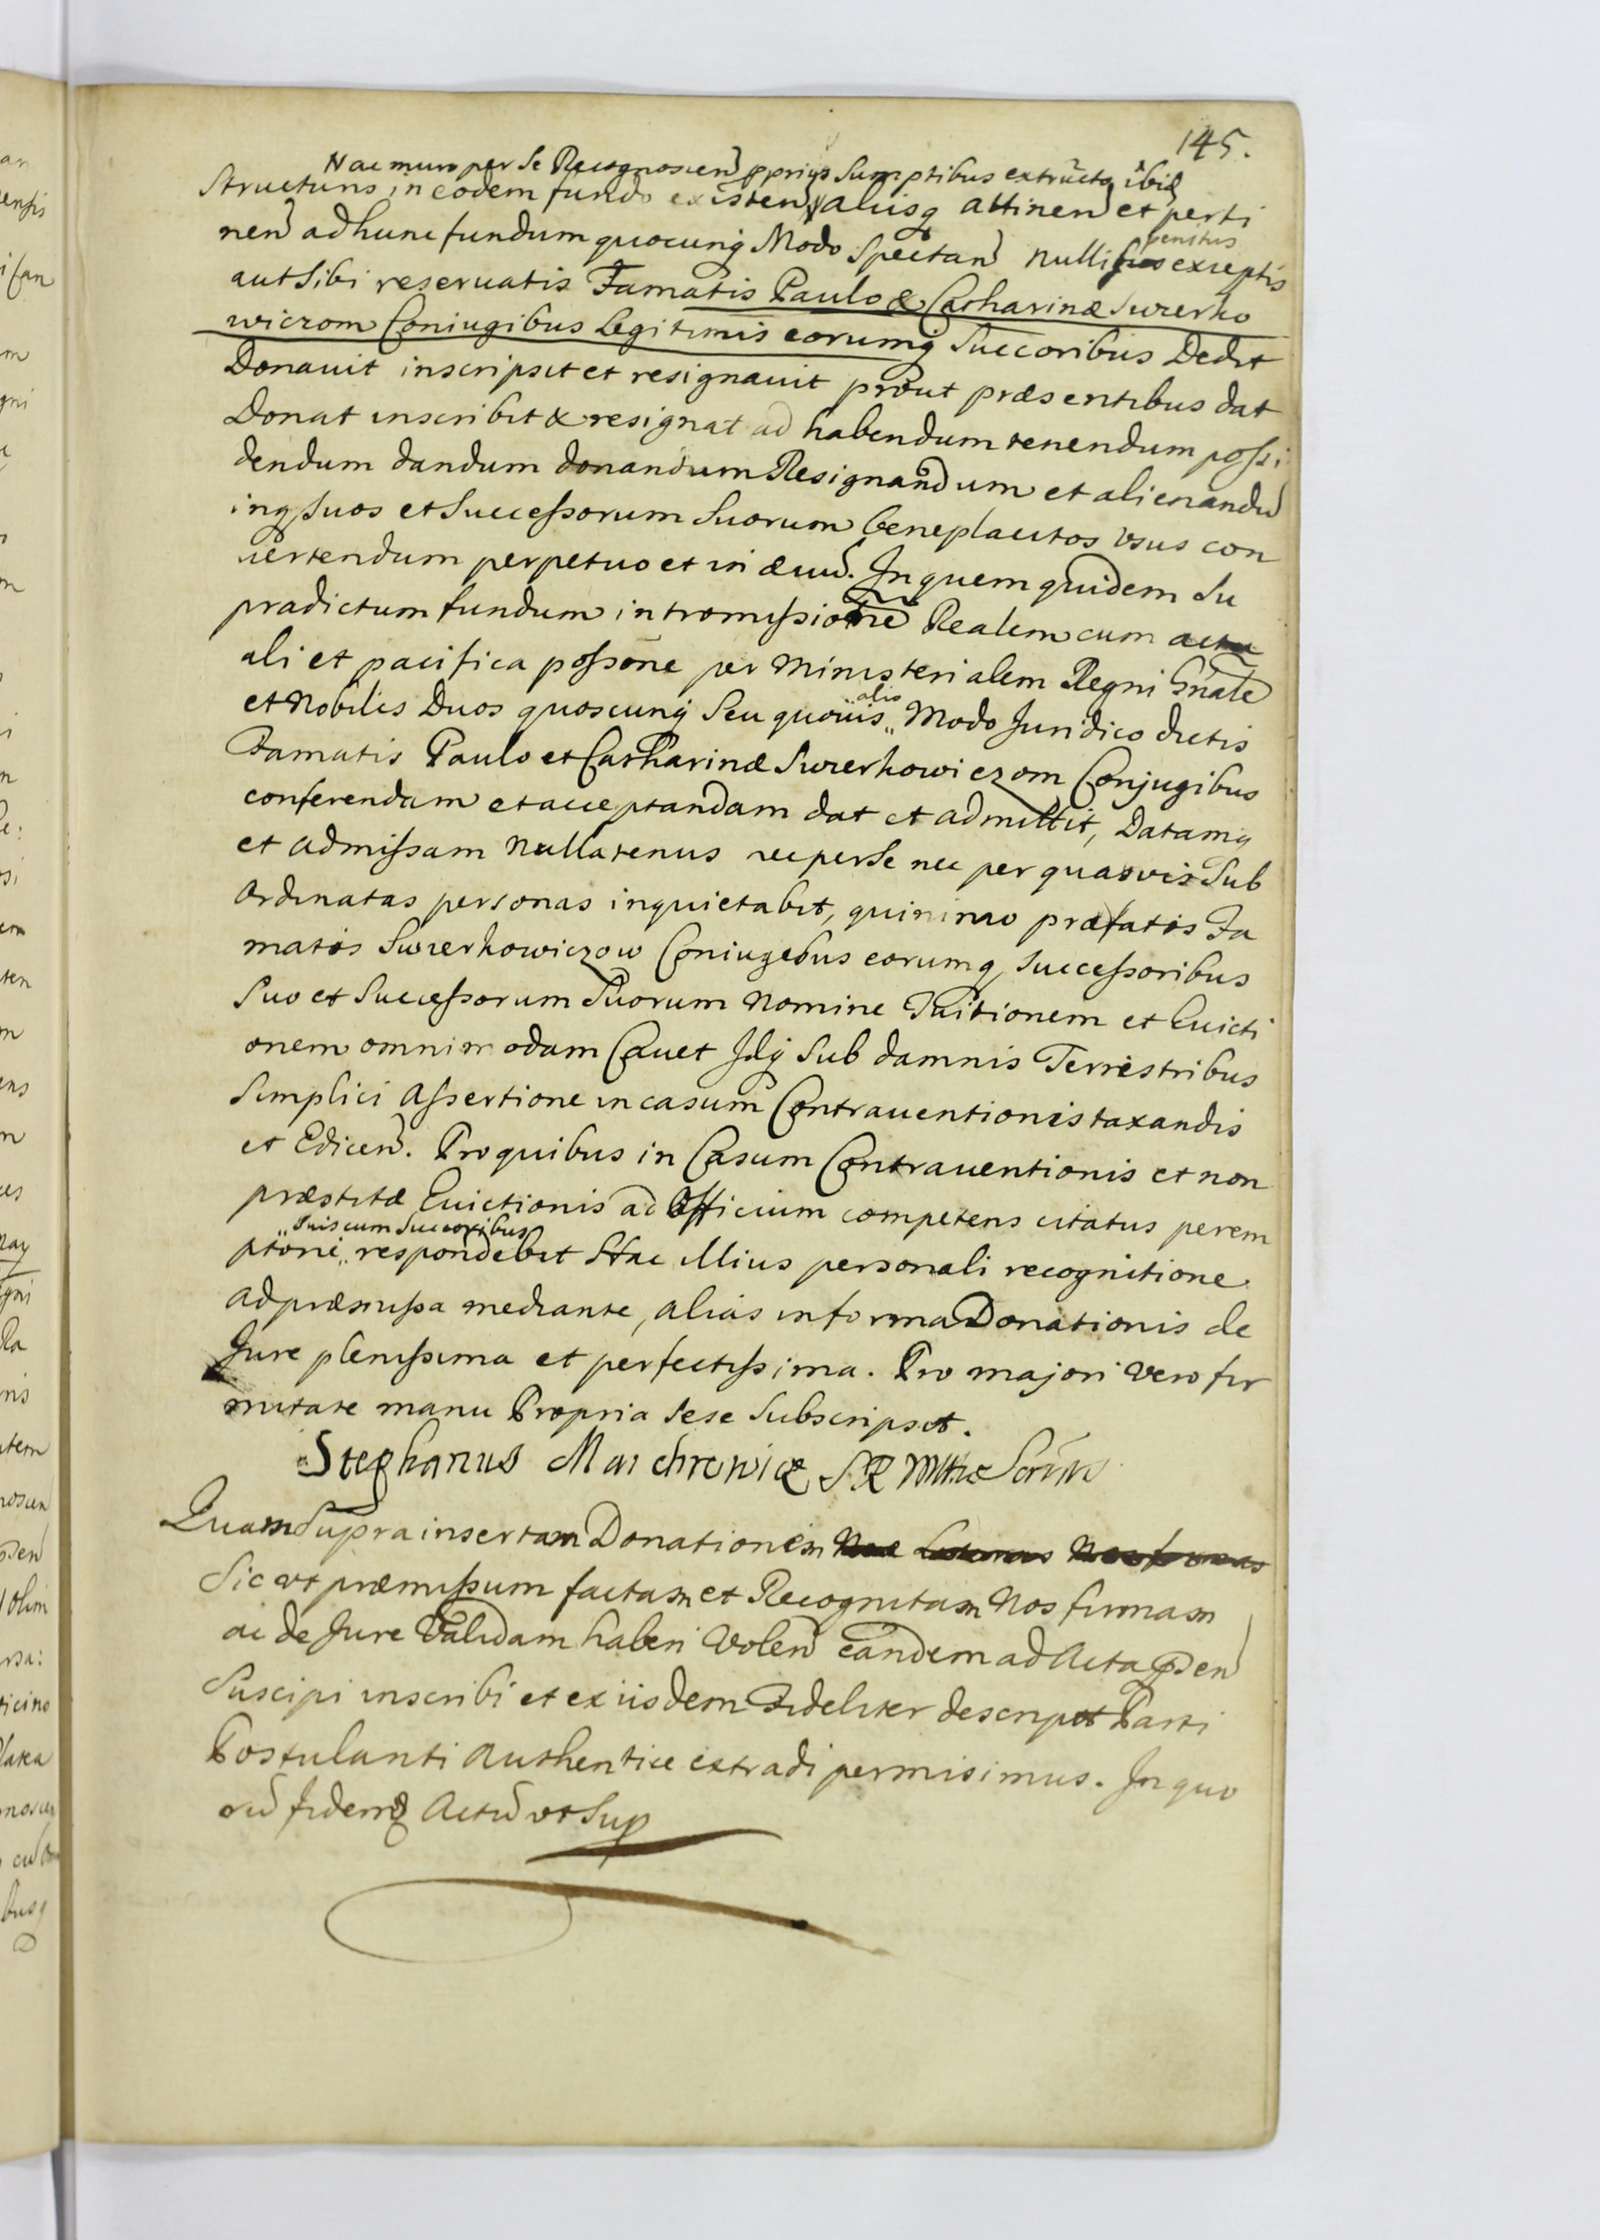 145.
Nac muro per Se Recognoscen pprijs Sumptibus extructo ibid
Structuris in eodem fundo existen aliisq attinen et perti
penitus
nen ad hunc fundum quocunq Modo Spectan nullis exceptis
aut Sibi reseruatis Famatis Paulo & Catharinæ Swierko
wiczom Coniugibus Legitimis eorumq Succoribus Dedit
Donauit inscripsit et resignauit prout præsentibus dat
Donat inscribit & resignat ad habendum tenendum possi
dendum dandum donandum Resignandum et alienandu
inq suos et Successorum Suorum beneplacitos vsus con
uertendum perpetuo et in æuu. In quem quidem Su
pradictum fundum intromissione Realem cum actu
ali et pacifica possone per Ministerialem Regni Gnale
alio
et Nobiles Duos quoscunq Seu quouis Modo Juridico dictis
Famatis Paulo et Catharinæ Swierkowiczom Conjugibus
conferendam et acceptandam dat et admittit, Datamq
et admissam Nullatenus nec per Se nec per quasvis Sub
ordinatas personas inquietabit, quinimo præfatis Fa
matis Swierkowiczow Coniugibus eorumq Successoribus
Suo et Successorum Suorum Nomine Tuitionem et Euicti
onem omnimodam Cauet Idq Sub damnis Terrestribus
Simplici Assertione in casum Contrauentionis taxandis
et Edicen. Pro quibus in Casum Contrauentionis et non
præstitæ Euictionis ad Officium competens citatus perem
Suis cum Succoribus
ptorie respondebit Hac illius personali recognitione
ad præmissa mediante, alias in forma Donationis de
Jure plenissima et perfectissima. Pro majori vero fir
mitate manu Propria Sese Subscripsit.
Stephanus Marchrowicz
Quam Supra insertam Donationem
Sic vt præmissum factam et Recognitam Nos firmam
ac de Jure Validam haberi Volen eandem ad Acta pden
Suscipi inscribi et ex iisdem Fideliter descript Parti
Postulanti Authentice extradi permisimus. In quo
ru fidem Actu vt Sup